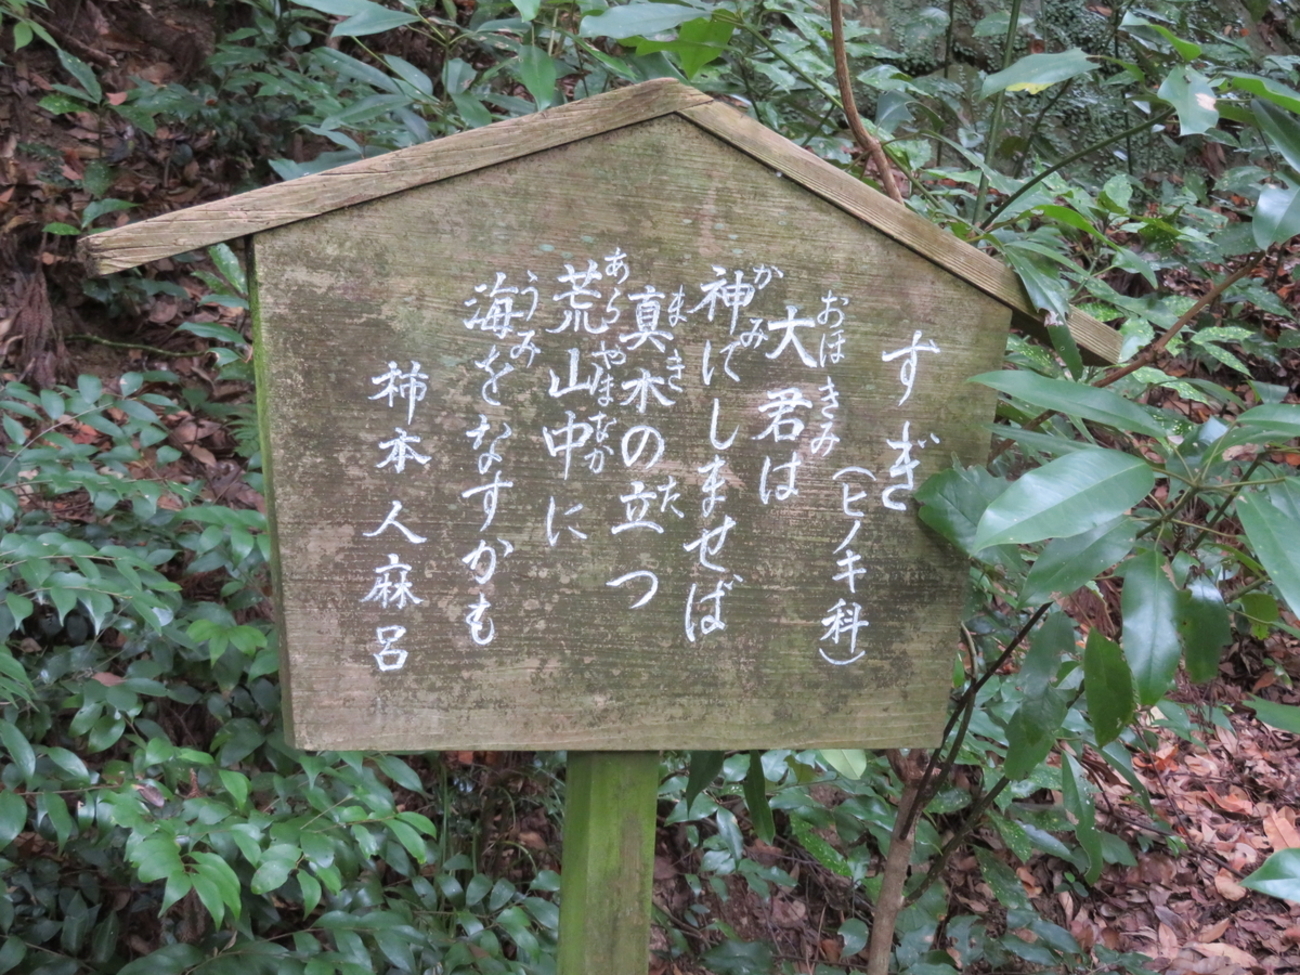 すぎ
(ヒノキ科)
大君は
おほきみ
神にしませば
かみ
真木の立つ
まきた
荒山中に
あらやまなか
海をなすかも
うみ
柿本人麻呂